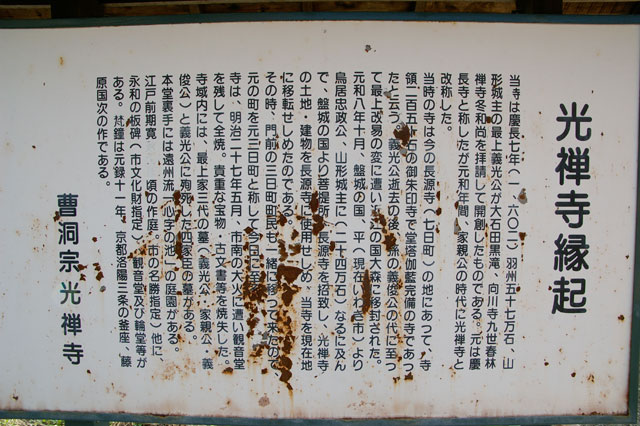 光禅寺縁起
当寺は慶長七年(一、六〇二)羽州五十七万石、山
形城主の最上義光公が大石田黒滝、向川寺九世春林
禅寺冬和尚を拝請して開創したものである。元は慶
長寺と称したが元和年間、家親公の時代に光禅寺と
改称した。
当時の寺は今の長源寺(七日町)の地にあって、寺
領二百五十石の御朱印寺で堂塔伽藍完備の寺であっ
たと云う。義光公逝去の後、孫の義俊公の代に至っ
て最上改易の変に遭い近江の国大森に移封された。
元和八年十月、盤城の国、平(現在いわき市)より
鳥居忠政公、山形城主に(二十四万石)なるに及ん
で、盤城の国より菩提所、長源寺を招致し、光禅寺
の土地・建物を長源寺に使用せしめ、当寺を現在地
に移転せしめたのである。
その時、門前の三日町町民も一緒に移って来たので
元の町を元三日町と称して今日に至る。
寺は、明治二十七年五月、市南の大火に遭い観音堂
を残して全焼。貴重な宝物・古文書等を焼失した。
寺域内には、最上家三代の墓(義光公・家親公・義
俊公)と義光公に殉死した四家臣の墓がある。
本堂裏手には遠州流「心字の池」の庭園がある。
江戸前期寛 頃の作庭。(市の名勝指定)他に、
永和の板碑(市文化財指定)、観音堂及び輪堂等が
ある。梵鐘は元禄十一年、京都洛陽三条の釜座、藤
原国次の作である。
曹洞宗光禅寺